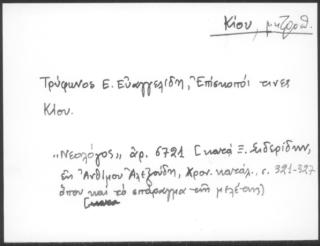 Κίου, μητροπ.
Τρύφωνος Ε. Εὐαγγελίδη, Ἐπίσκοποί τινες
Κίου.
"Νεολόγος" ἀρ. 6721 [κατὰ Ξ. Σιδερίδην,
ἐν Ἀνθίμου Ἀλεξούδη, Χρον. κατάλ., σ. 321-327
ὅπου καὶ τὸ
τῆς μελέτης]